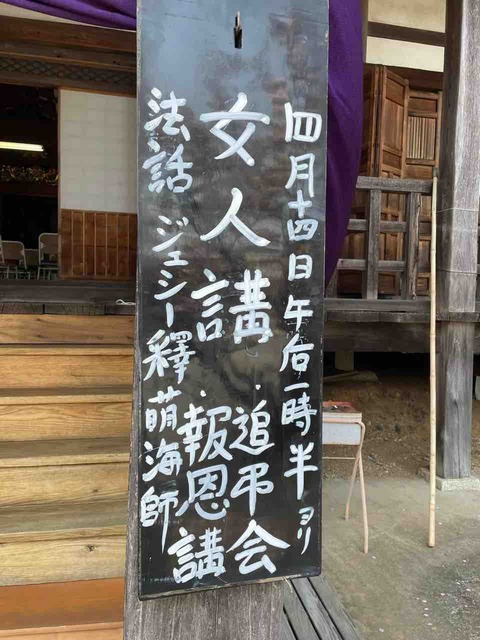 四月十四日午后一時半ヨリ
女人講・追弔会
報恩講
法話 ジェシー釋萌海師